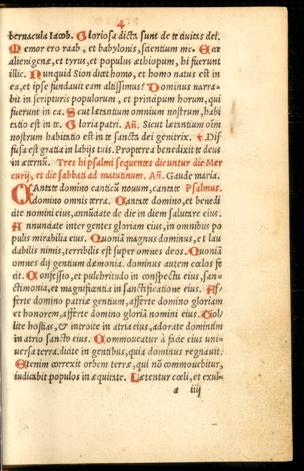 4
bernacula Iacob. Gloriosa dicta sunt de te ciuitas dei.
Memor ero raab, et babylonis, scientium me. Ecce
alienigenæ, et tyrus, et populus æthiopum, hi fuerunt
illic. Nunquid Sion dicet homo, et homo natus est in
ea, et ipse fundauit eam altissimus? Dominus narra-
bit in scripturis populorum, et principum horum, qui
fuerunt in ea. Sicut lætantium omnium nostrum, habi
tatio est in te. Gloria patri. Añ. Sicut lætantium oĩm
nostrum habitatio est in te sancta dei genitrix. Dif
fusa est gratia in labijs tuis. Propterea benedixit te deus
in æternũ. Tres hi psalmi sequentes dicuntur die Mer
curij, et die sabbati ad matutinum. Añ. Gaude maria.
CAntate domino canticũ nouum, cantate Psalmus.
domino omnis terra. Cantate domino, et benedi
cite nomini eius, annũciate de die in diem salutare eius.
Annunciate inter gentes gloriam eius, in omnibus po
pulis mirabilia eius. Quoniã magnus dominus, et lau
dabilis nimis, terribilis est super omnes deos. Quoniã
omnes dij gentium dæmonia, dominus autem cœlos fe
cit. Confessio, et pulchritudo in conspectu eius, san-
ctimonia, et magnificentia in sanctificatione eius. Af
ferte domino patriæ gentium, afferte domino gloriam
et honorem, afferte domino gloriã nomini eius. Tol
lite hostias, & introite in atria eius, adorate dominum
in atrio sancto eius. Commoueatur à facie eius uni-
uersa terra, dicite in gentibus, quia dominus regnauit.
Etenim correxit orbem terræ, qui nõ commouebitur,
iudicabit populos in æquitate. Lætentur cœli, et exul-
a iiij